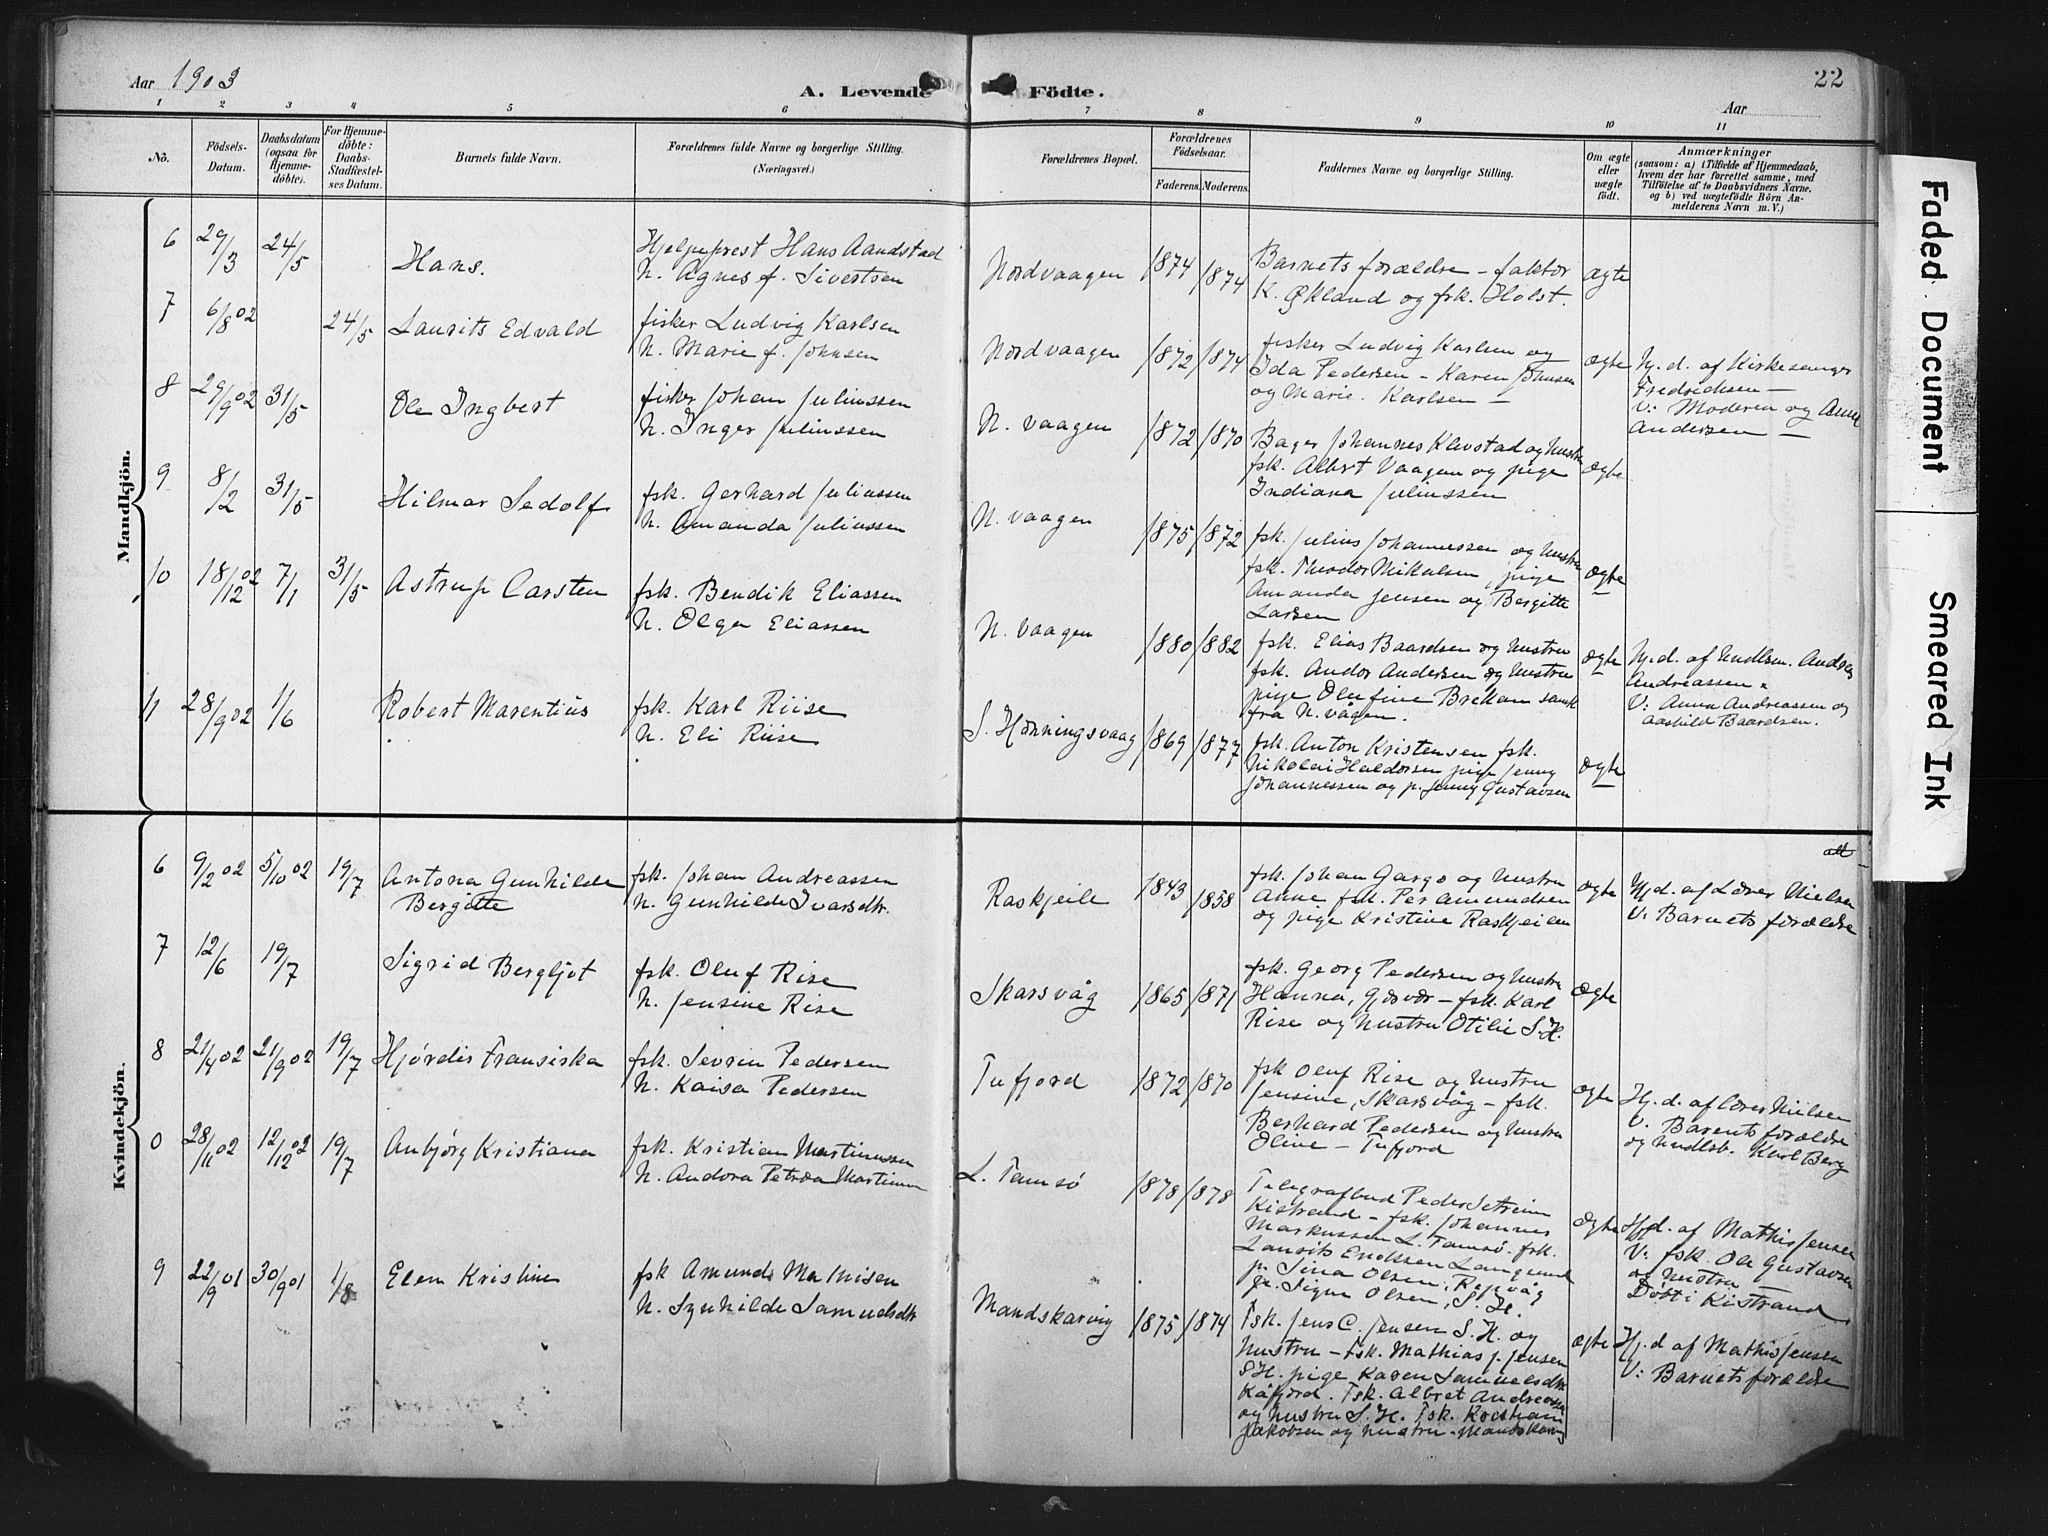 Aar 1903
A. Levende Födte.
22
Aar
1 2 3 4 5 6 7 8 9 10 11
No.
Födsels-Datum.
Daabsdatum (ogsaa for Hjemme-döbte).
For Hjemme-döbte: Daabs-Stadfestel-ses Datum.
Barnets fulde Navn.
Forældrenes fulde Navne og borgerlige Stilling. (Næringsvei.)
Forældrenes Bopæl.
Forældrenes Födselsaar.
Faderens. Moderens.
Faddernes Navne og borgerlige Stilling.
Om ægte eller uægte födt.
Anmærkninger
(saasom: a) i Tilfælde af Hjemmedaab,
hvem der har forrettet samme, med
Tilföielse af to Daabsvidners Navne,
og b) ved uægtefödte Börn An-
melderens Navn m. V.)
Mandkjön.
6 29/3 24/5 Hans.
Hjelpeprest Hans Aandstad
H. Agnes f. Sivertsen
Nordvaagen 1874 1874
Barnets forældre - faktor
K. Økland og fsk. Holst.
ægte
7 6/8 02 24/5 Laurits Edvald
fisker Ludvig Karlsen
H. Marie f. Johnsen
Nordvaagen 1872 1874
fisker Ludvig Karlsen og
Ida Pedersen - Karen Johnsen
og Marie Karlsen -
ægte
Hj. d. af Kirkesanger
Fredriksen -
V: Moderen og Anne
Andersen -
8 29/9 02 31/5 Ole Ingbert
fisker Johan Juliussen
H. Inger Juliussen
N. Vaagen 1872 1870
Bager Johannes Klevstad og Hustru
fsk. Albert Vaagen og pige
Indiana Juliussen
ægte
9 8/2 31/5 Hilmar Sedolf
fsk. Gerhard Juliussen
H. Amanda Juliussen
N. Vaagen 1875 1872
fsk. Julius Johannessen og Hustru
fsk. Theodor Mikalsen, pige
Amanda Jensen og Bergitte
Larsen
ægte
10 18/12 02 7/1 31/5 Astrup Carsten
fsk. Bendik Eliassen
H. Olga Eliassen
N. Vaagen 1880 1882
fsk. Elias Baardsen og Hustru
fsk. Andor Andersen og Hustru
pige Olufine Brekan samt
fra N. vågen.
ægte
Hj. d. af Hndlsm. Andreas
Andreassen.
V: Anna Andreassen og
Aashild Baardsen.
11 28/9 02 1/6 Robert Marentius
fsk. Karl Riise
H. Eli Riise
S. Honningsvaag 1869 1877
fsk. Anton Kristensen fsk.
Nikolai Haldorsen pige Jenny
Johannessen og p. Jenny Gustavsen
ægte
Kvindekjön.
6 9/2 02 5/10 02 19/7 Antona Gunhilde
Bergitte
fsk. Johan Andreassen
H. Gunhilde Ivarsdtr.
Raskjeile 1843 1858
fsk. Johan Gargo og Hustru
Anne fsk. Per Amundsen
og pige Kristine Raskjeilen
ægte
Hj. d. af Lærer Nielsen
V: Barnets forældre
7 12/6 19/7 Sigrid Bergljot
fsk. Oluf Rise
H. Jensine Rise
Skarsvåg 1865 1871
fsk. Georg Pedersen og Hustru
Hanna, Gjesvær - fsk. Karl
Rise og Hustru Otilie S.H.
ægte
8 21/4 02 21/9 02 19/7 Hjórdis Fransiska
fsk. Sevrin Pedersen
H. Kaisa Pedersen
Tufjord 1872 1870
fsk Oluf Rise og Hustru
Jensine, Skarsvåg - fsk.
Berhard Pedersen og Hustru
Oline - Tufjord
ægte
Hj. d. af Lærer Nielsen
V. Barnets forældre
og Hndlsb. Karl Berg
0 28/11 02 12/12 02 19/7 Anbjørg Kristiana
fsk. Kristian Martinussen
H. Andora Petrea Martinussen
L. Tamsø 1878 1878
Telegrafbud Peder Setreim
Kistrand - fsk. Johannes
Markussen L. Tamsø. fsk.
Laurits Endresen
p. Sina Olsen, Repvåg
p. Signe Olsen, S.H.
ægte
Hjd. af Mathis Jensen
V: fsk. Ole Gustavsen
og Hustru -
Döbt i Kistrand
9 22/9 01 30/9 01 1/8 Elen Kristine
fsk Amund Mathisen
H. Synhilde Samuelsdtr
Mandskarvig 1875 1874
Fsk. Jens C. Jensen S.H. og
Hustru - Fsk. Mathias J. Jensen
S.H. pige Karen Samuelsdtr
Kåfjord. Fsk. Albret Andreassen
og Hustru S.H. Fsk. Kristian
Jakobsen og Hustru - Mandskarvig
ægte
Hj. d af Mathis Jensen
V: Barnets forældre
Faded Document
Smeared Ink